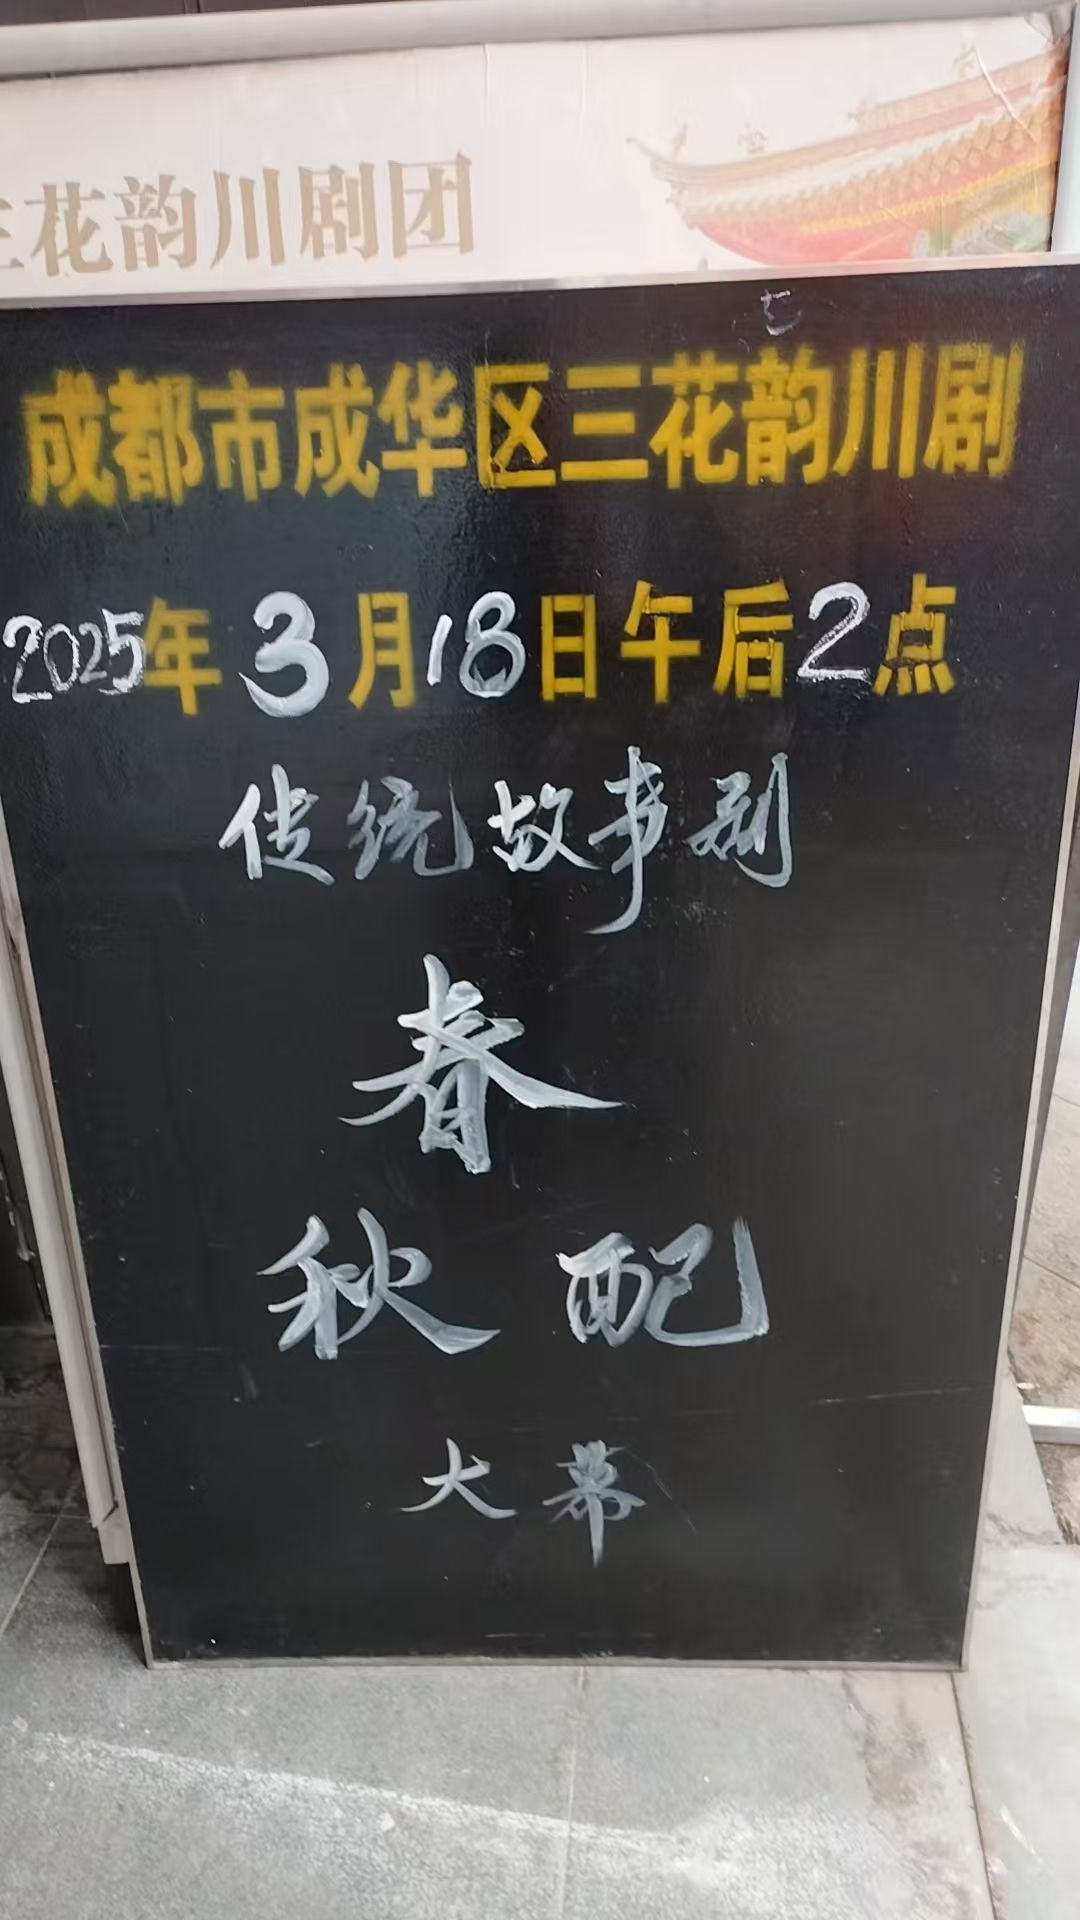 三花韵川剧团
成都市成华区三花韵川剧
2025年3月18日午后2点
传统故事剧
春
秋配
大幕